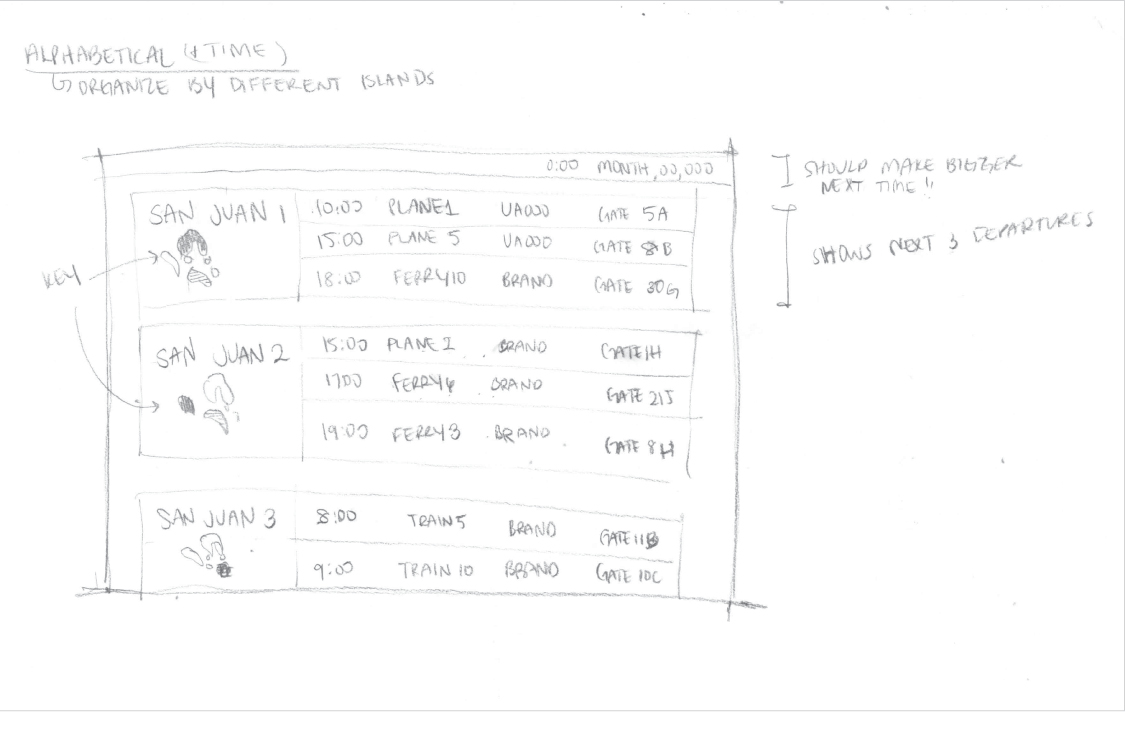 ALPHABETICAL (+ TIME)
↳ ORGANIZE BY DIFFERENT ISLANDS
0:00 MONTH, 00, 000
SHOULD MAKE BIGGER
NEXT TIME!!
SHOWS NEXT 3 DEPARTURES
KEY
SAN JUAN 1
10:00 PLANE1 UA000 GATE 5A
15:00 PLANE 5 UA000 GATE 8B
18:00 FERRY10 BRAND GATE 30G
SAN JUAN 2
15:00 PLANE 2 BRAND GATE 1H
1700 FERRY4 BRAND GATE 21J
19:00 FERRY3 BRAND GATE 8H
SAN JUAN 3
8:00 TRAIN5 BRAND GATE 11B
9:00 TRAIN 10 BRAND GATE 10C